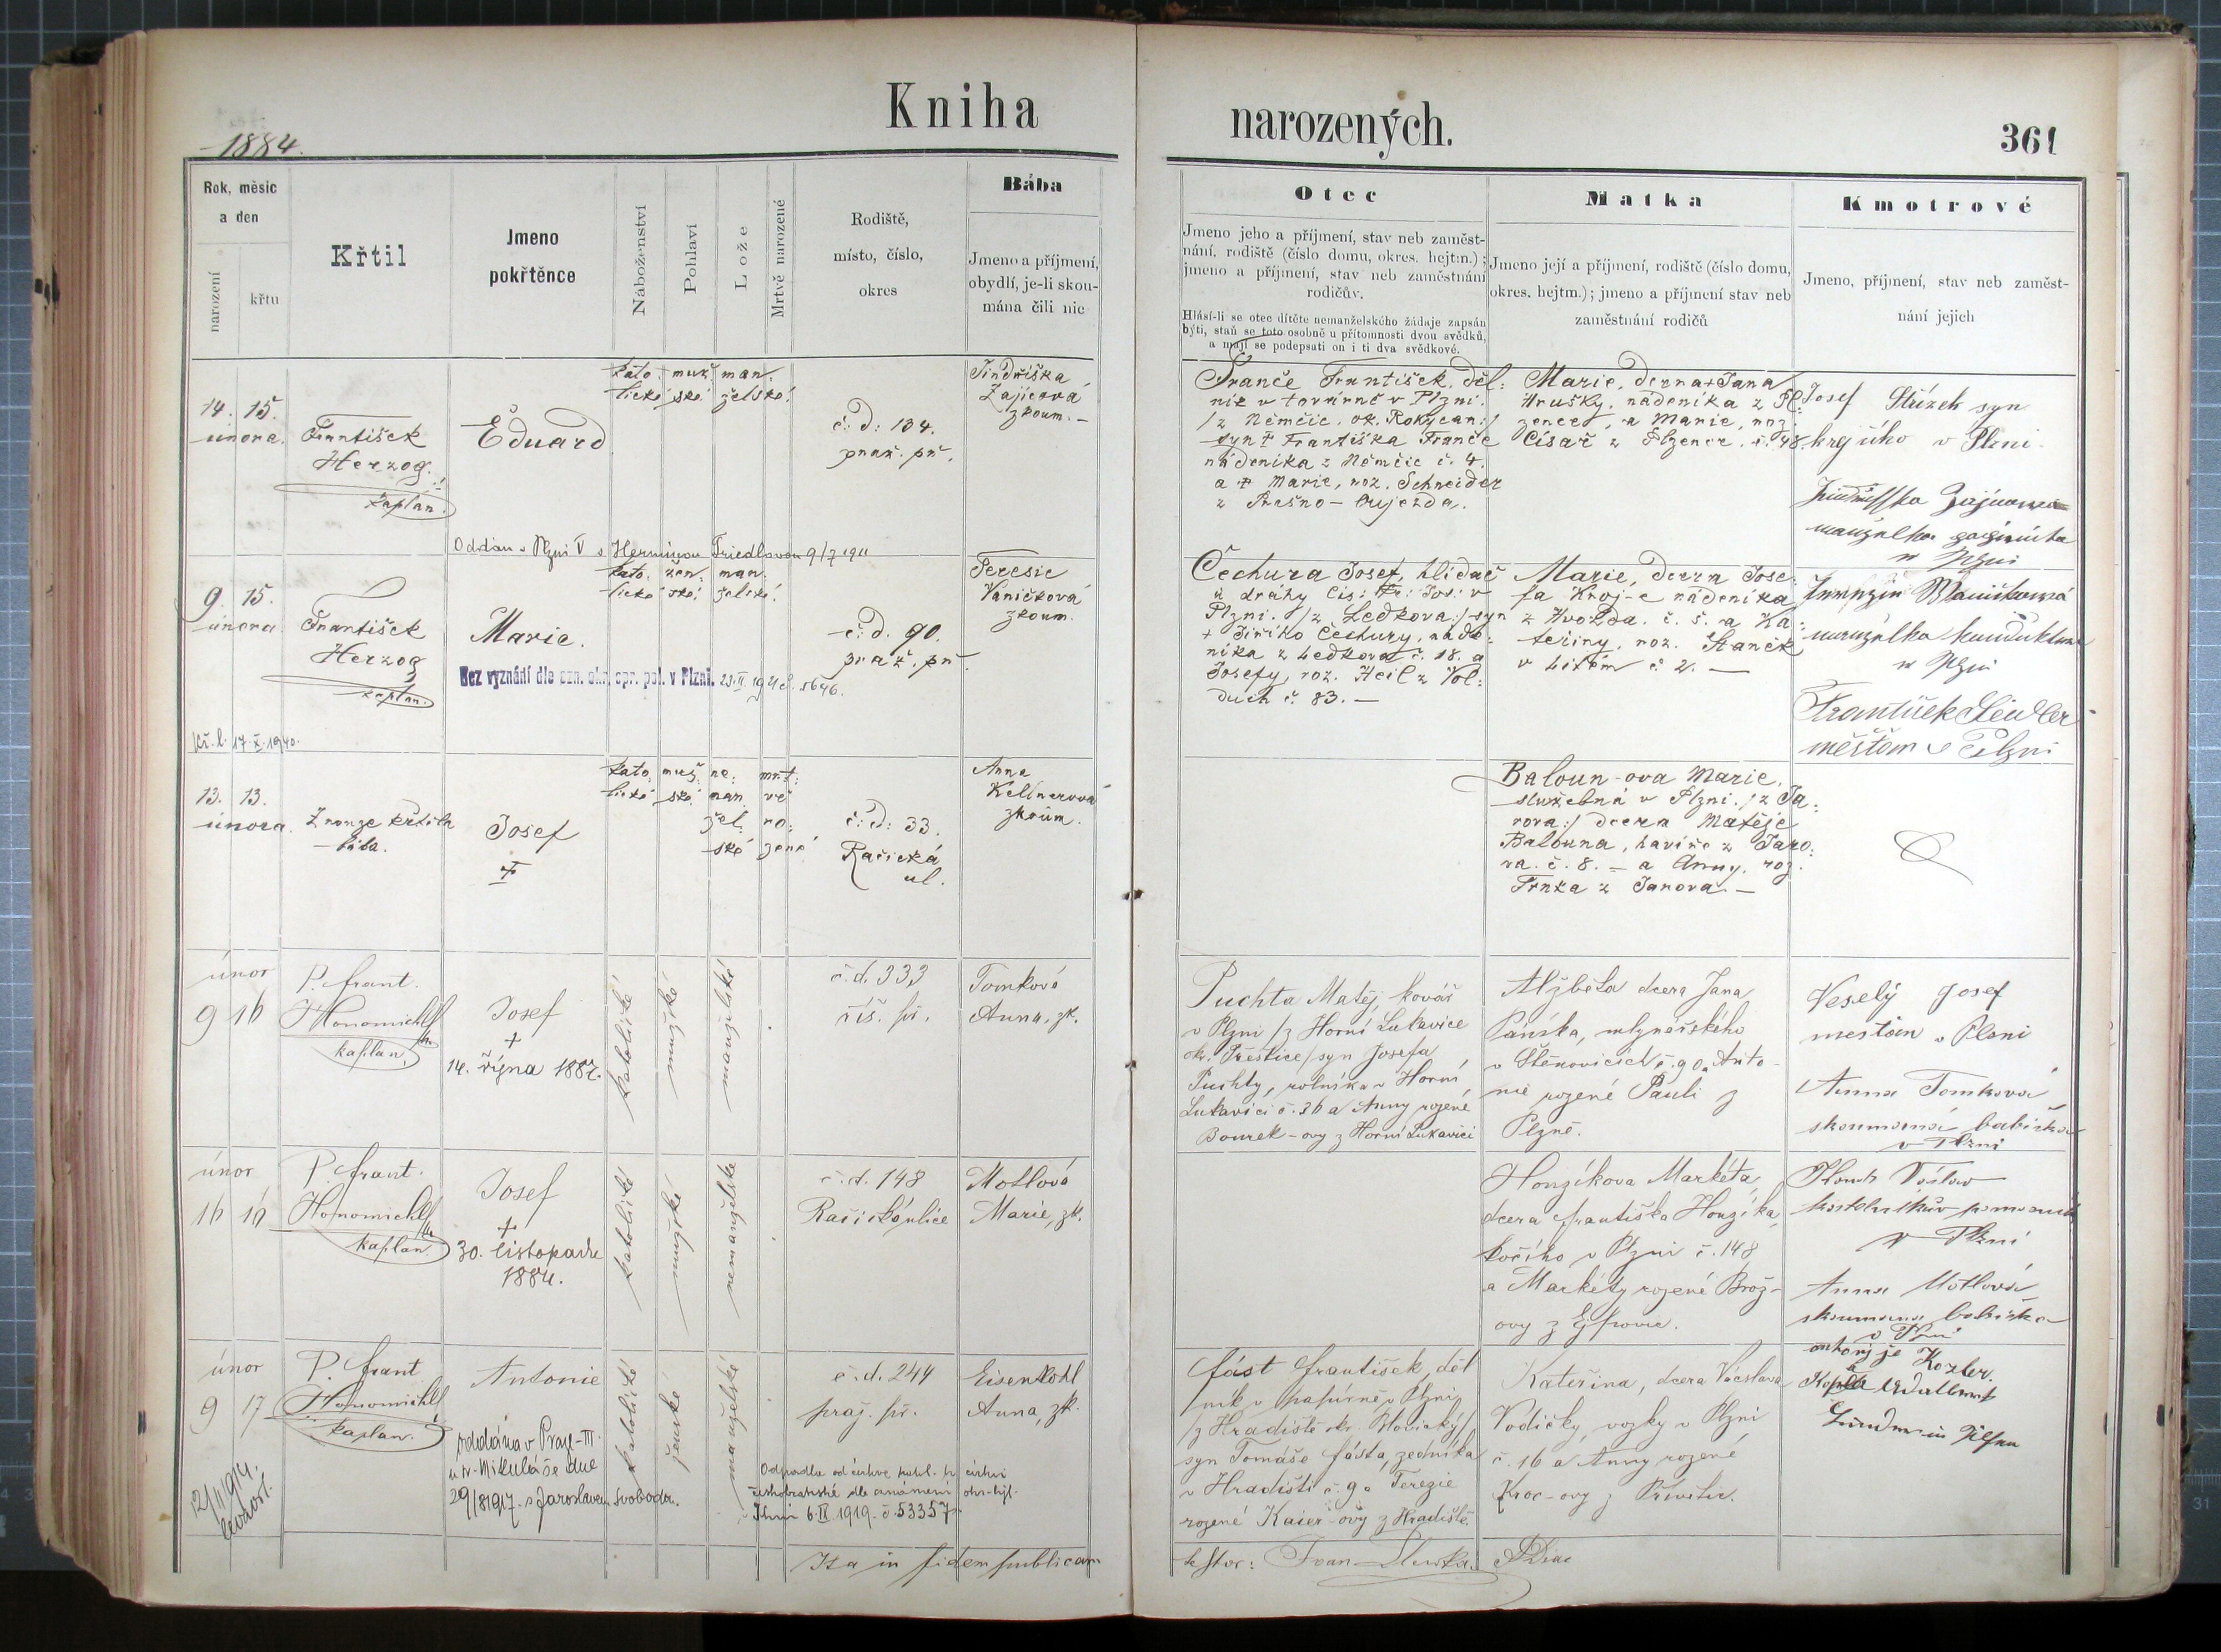 Kniha
narozených.
361
1884.
Rok, měsíc
a den
narození
křtu
Křtil
Jmeno
pokřtěnce
Náboženství
Pohlaví
Lože
Mrtvě narozené
Rodiště,
místo, číslo,
okres
Bába
Jmeno a příjmení,
obydlí, je-li skou-
mána čili nic
Otec
Jmeno jeho a příjmení, stav neb zaměst-
nání, rodiště (číslo domu, okres. hejtm.);
jmeno a příjmení, stav neb zaměstnání
rodičův.
Hlásí-li se otec dítěte nemanželského žádaje zapsán
býti, staň se toto osobně u přítomnosti dvou svědků,
a mají se podepsati on i ti dva svědkové.
Matka
Jmeno její a příjmení, rodiště (číslo domu,
okres. hejtm.); jmeno a příjmení stav neb
zaměstnání rodičů
Kmotrové
Jmeno, příjmení, stav neb zaměst-
nání jejich
14. 15.
února.
František
Herzog
kaplan.
Eduard
kato: muž: man:
lické ské želské.
č: d: 134.
praž. př.
Jindřiška
Zajícová
zkoum. –
Oddán v Plzni s Herminou Friedlovou 9/7 1911
Franče František, děl:
ník v továrně v Plzni.
/z Němčic. ok. Rokycan:/
syn † Františka Franče
nádeníka z Němčic č. 4.
a † Marie, roz. Schneider
z Prašno-Oujezda.
Marie, dcera † Jana
Hrušky, nádeníka z Pl:
zence, a Marie, roz.
Císař z Plzence. č. 48.
Josef Střízek syn
krejčího v Plzni
manželka
v Plzni
9. 15.
února.
František
Herzog
kaplan.
Marie.
Bez vyznání dle ozn. okr. spr. pol. v Plzni. 23. II. 1921 č. 5646.
Kř. l. 17. X. 1940.
kato. žen: man:
lické ské. želské.
č: d. 90.
praž. př.
Teresie
Vaničková
zkoum.
Čechura Josef, hlídač
u dráhy Cís: Fr: Jos: v
Plzni. /z Ledkova:/ syn
† Jiřího Čechury, náde:
níka z Ledkova č. 18. a
Josefy, roz. Heil z Vol:
duch č. 83. –
Marie, dcera Jose:
fa Kroj-e nádeníka
z Hvozda. č. 5. a Ka:
teřiny, roz. Staněk
v Litém č 2. –
manželka konduktera
v Plzni
František
měšťan v Plzni
13. 13.
února.
Z nouze křtila
bába.
Josef
†
kato: muž: ne: mrt:
lické ské. man vě
žel: ro:
ské zené
č: d: 33.
Račická
ul.
Anna
Kellnerová
zkoum.
Baloun-ova Marie.
služebná v Plzni. /z Ja:
rova:/ dcera Matěje
Balouna, havíře z Jaro:
va. č. 8. – a Anny, roz.
Trnka z Janova. –
únor
9 16
P. Frant.
Honomichl
kaplan.
Josef
+
14. října 1887.
katolické
mužské
manželské
č. d. 333
říš. př.
Tomková
Anna, zk.
Puchta Matěj, kovář
v Plzni /z Horní Lukavice
ok. Přeštice/ syn Josefa
Puchty, rolníka v Horní
Lukavici č. 36 a Anny rozené
Bourek-ovy z Horní Lukavici
Alžběta dcera Jana
Pánka, mlynářského
v Štěnovicích č. 90 a Anto-
nie rozené Pauli z
Plzně.
Veselý Josef
mesťan v Plzni
Anna Tomková
skoumaná babička
v Plzni
únor
16 16
P. Frant.
Honomichl
kaplan
Josef
+
30. listopadu
1884.
katolické
mužské
nemanželské
č. d. 148
Račická ulice
Motlová
Marie, zk.
Honzíkova Markéta,
dcera Františka Honzíka,
kočího v Plzni č. 148
a Markéty rozené Brož-
ovy z
Václav
v Plzni
Anna Motlová
skoumaná babička
v Plzni
únor
9 17
P. Frant
Honomichl
kaplan.
Antonie
oddána v Praze-III.
u sv. Mikuláše dne
29/8 1917. s Jaroslavem Svoboda.
12/1 1914.
katolické
ženské
manželské
č. d. 244
praž. př.
Eisenkohl
Anna, zk.
Odpadla od církve katol. k církvi
českobratrské dle oznámení
Plzni 6. IX. 1919. č. 53357
Fást František, děl
ník v papírně v Plzni
/z Hradiště okr. Blovický/
syn Tomáše Fásta, zedníka
v Hradišti č. 9 a Terezie
rozené Kaier-ovy z Hradiště.
Kateřina, dcera Václava
Vodičky, vozky v Plzni
č. 16 a Anny rozené
Kroc-ovy z
Kozler.
in Pilsen
Ita in fidem publicam
testor: